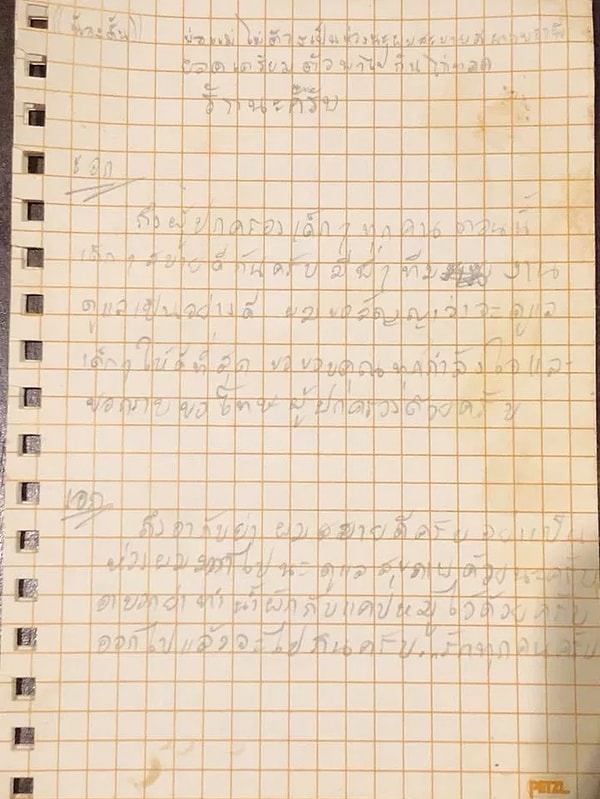 (น้องตั้น) พ่อแม่ ไม่ต้องเป็นห่วงนะผมสบายดี
ยอดเตรียมตัวพาไปกินไก่ทอด
รักนะครับ
เอก
ถึงผู้ปกครองเด็กๆ ทุกคน ตอนนี้
เด็กๆ สบายดีกันครับ มีพี่ๆ ทีมงาน
ดูแลเป็นอย่างดี ผมขอสัญญาว่าจะดูแล
เด็กๆ ให้ดีที่สุด ขอขอบคุณทุกกำลังใจ และ
ขอกราบขอโทษผู้ปกครองด้วยครับ
เอก
ถึงอากับย่า ผมสบายดีครับ อย่าเป็น
ห่วงผมมากไปนะ ดูแลสุขภาพด้วยนะครับ
อาบอกย่าทำน้ำผักกับแคปหมูไว้ด้วยครับ
ออกไปแล้วจะไปกินครับ...รักทุกคนครับ
PETZL